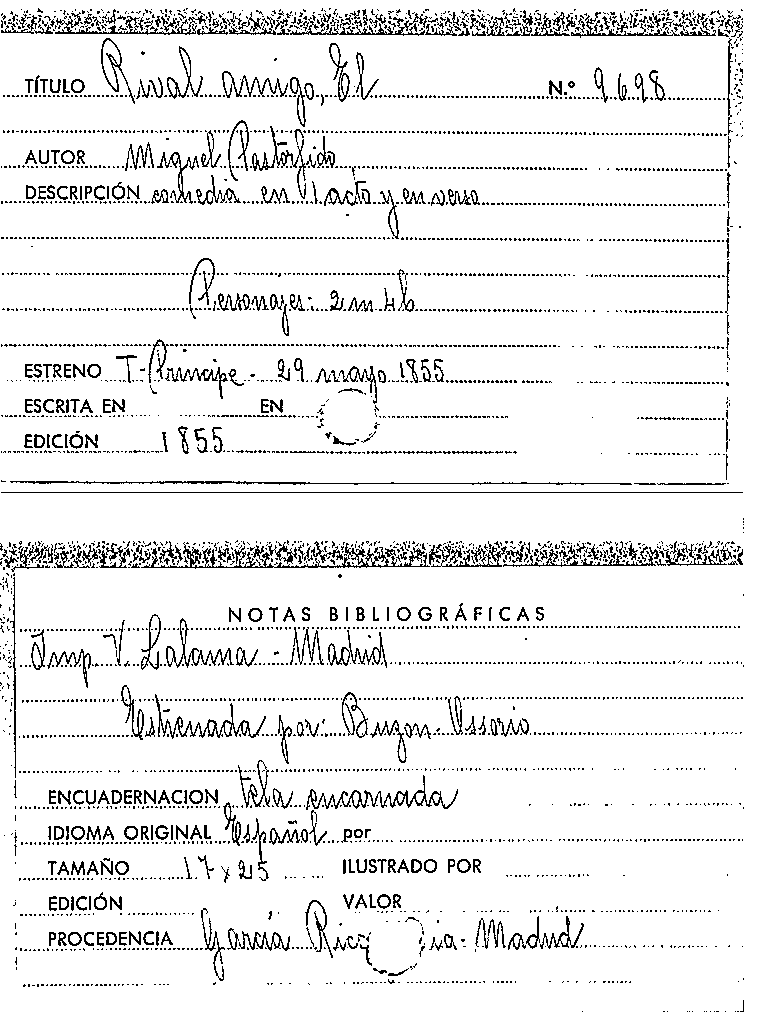 TÍTULO Rival amigo, El N.º 9698
AUTOR Miguel Pastorfido
DESCRIPCIÓN comedia en 1 acto y en verso
Personajes- 2 m 4 h
ESTRENO T-Príncipe - 29 mayo 1855
ESCRITA EN EN
EDICIÓN 1855
NOTAS BIBLIOGRÁFICAS
Imp V. Lalama - Madrid
Estrenada por: Buzon-Ossorio
ENCUADERNACION tela encarnada
IDIOMA ORIGINAL Español por
TAMAÑO 17 x 25 ILUSTRADO POR
EDICIÓN VALOR
PROCEDENCIA García Rico Madrid